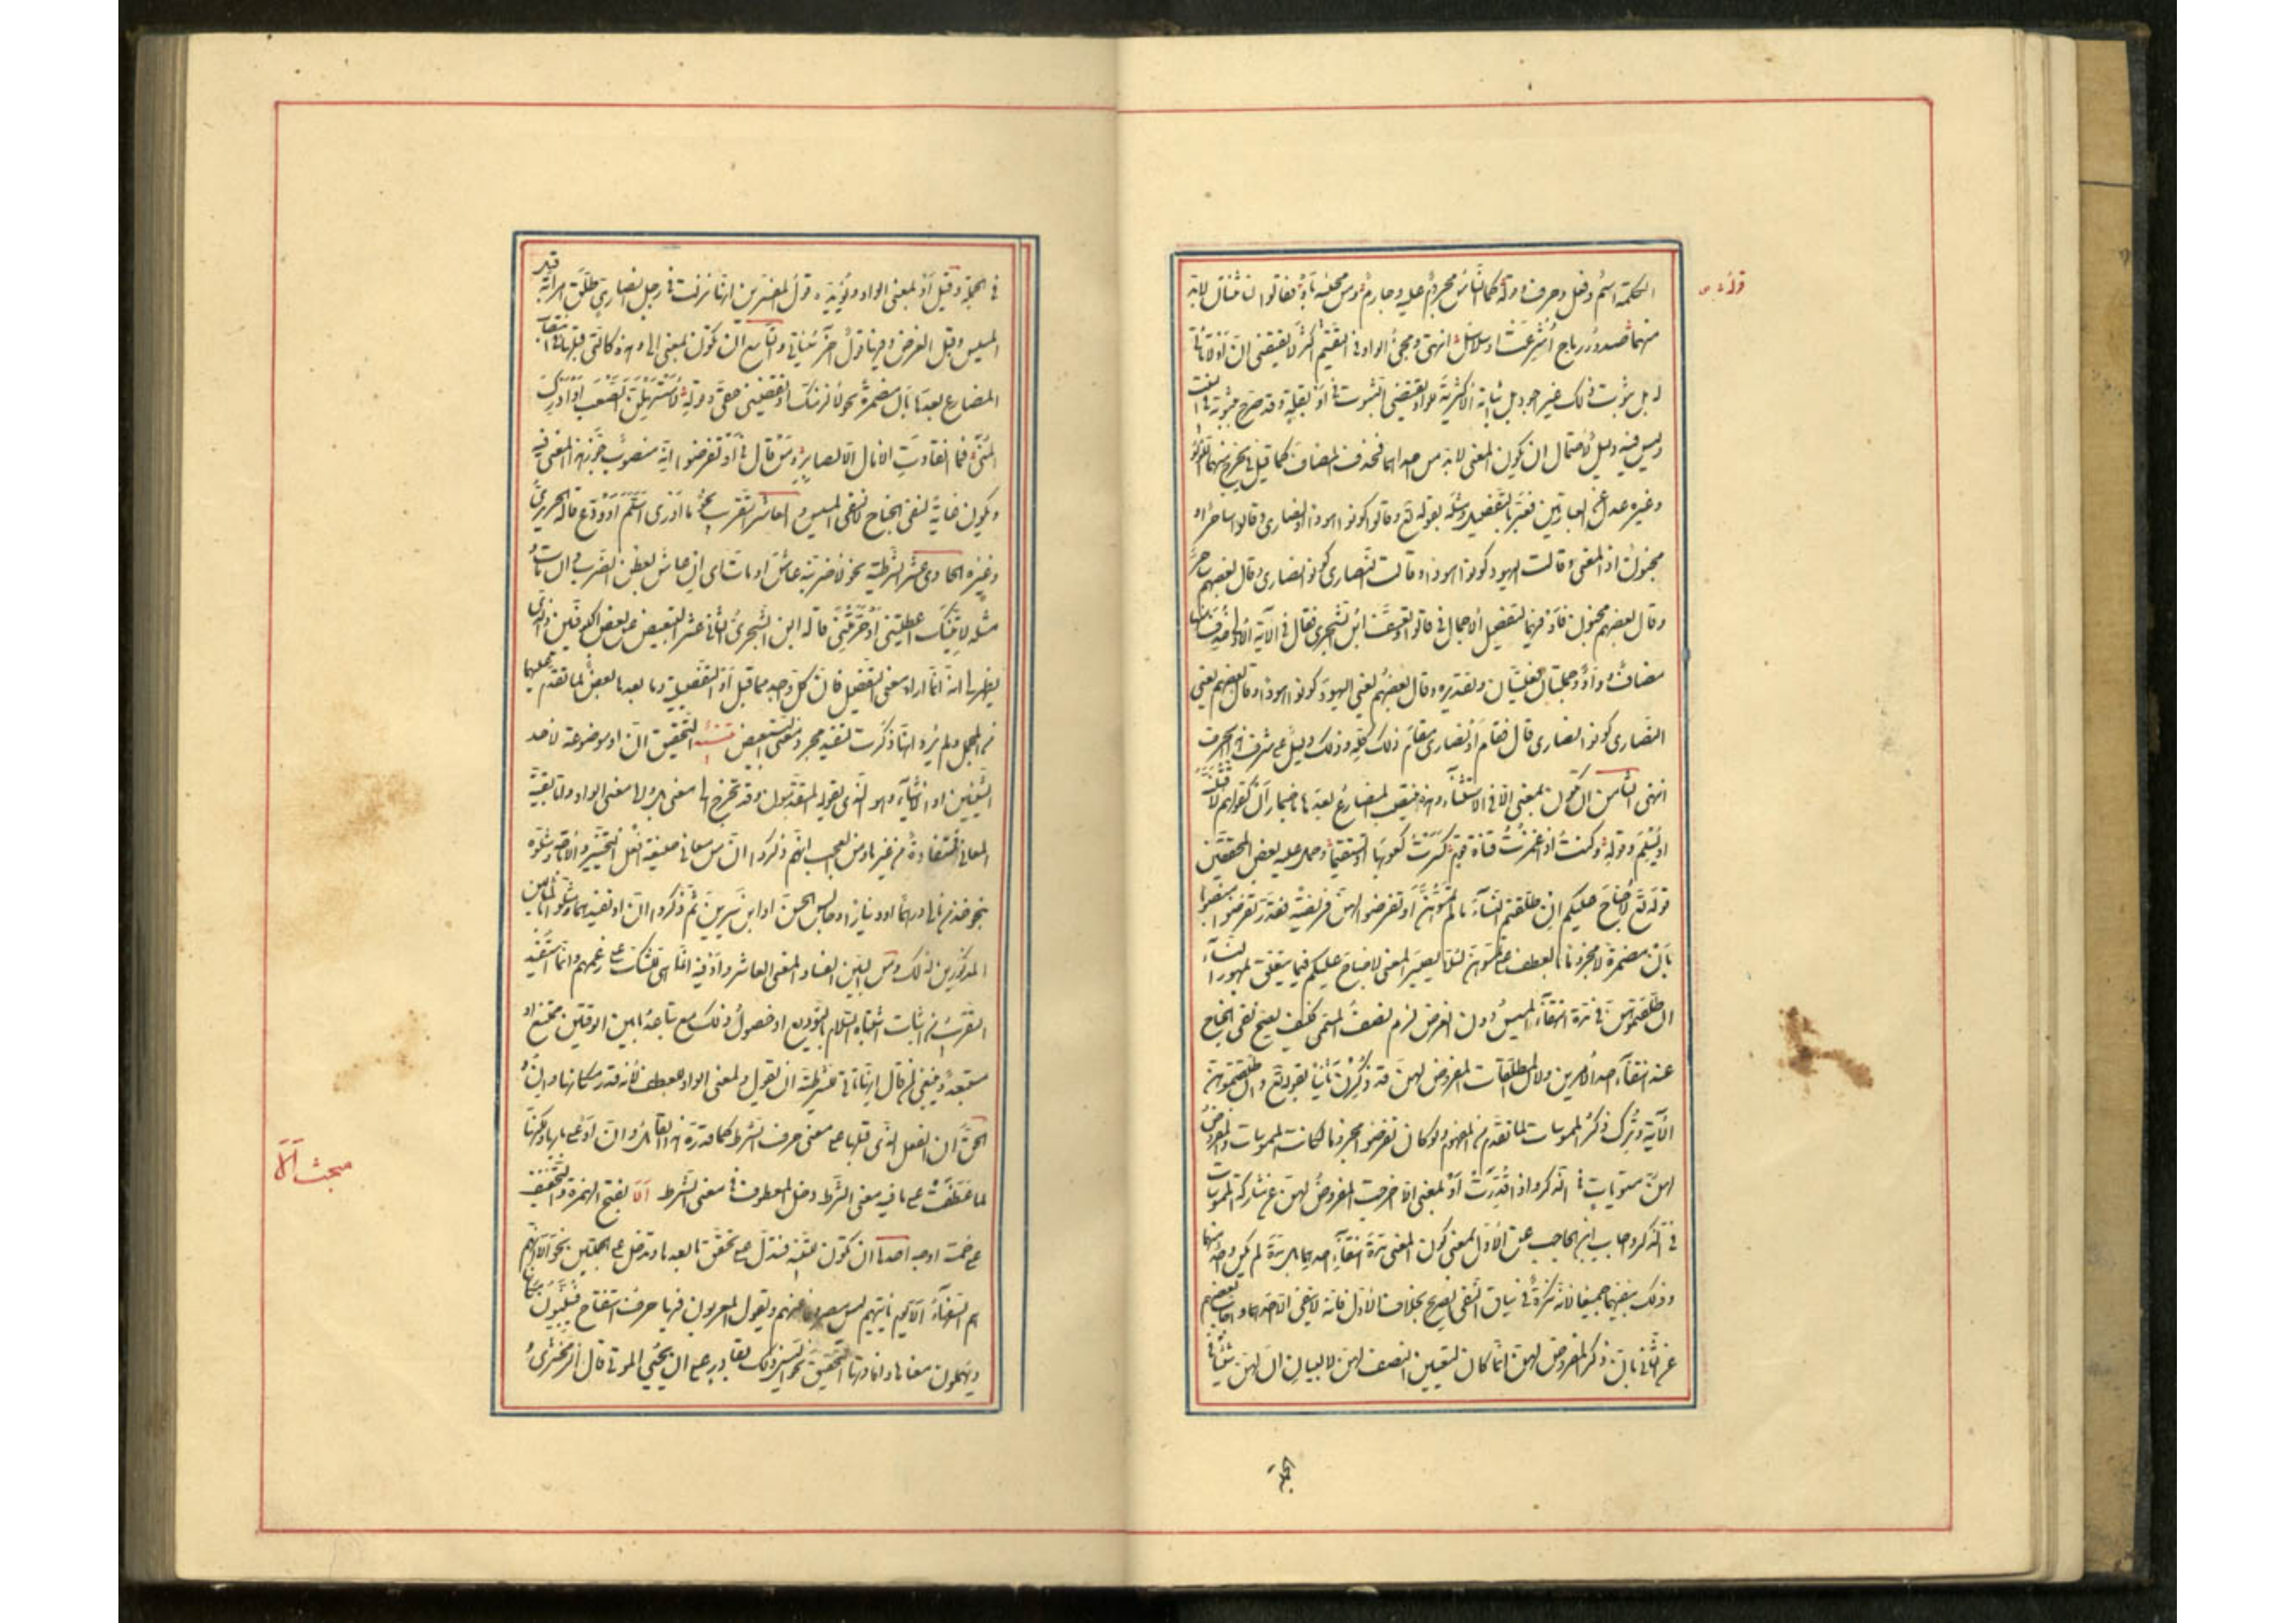 قوله
الكلمة اسم وفعل وحرف وقوله كما الناس مجروم عليه وجارم ومن مجيئه بأو فقالوا لنا ثنتان لا بد
منهما صدور رماح أشرعت او سلاسل انتهى ومجئ الواو فى التقسيم اكثر لا يقتضى ان أو لا تأتى
له بل ثبوت ذلك غير
وليس فيه دليل لاحتمال ان يكون المعنى لا بد من احداهما فحذف المضاف كما قيل فى يخرج منهما اللؤلؤ
وغيره عدل عن العبارتين فعبر بالتفصيل ومثله بقوله تع وقالوا كونوا هودا او نصارى وقالوا ساحر او
مجنون اذ المعنى وقالت اليهود كونوا هودا وقالت النصارى كونوا نصارى وقال بعضهم ساحر
وقال بعضهم مجنون فأو فيهما لتفصيل الاجمال فى قالوا وتعسف ابن الشجرى فقال فى الآية الاولى حذف منها
مضاف وواو وجملتان فعليتان وتقديره وقال بعضهم يعنى اليهود كونوا هودا وقال بعضهم يعنى
النصارى كونوا نصارى قال فقام أو نصارى مقام ذلك كله وذلك دليل على شرف هذا الحرف
انتهى الثامن ان تكون بمعنى الا فى الاستثناء وهذه ينتصب المضارع بعدها باضمار أن كقولهم لأقتلنه
او يسلم وقوله وكنت اذا غمزت قناة قوم كسرت كعوبها او تستقيما وحمل عليه بعض المحققين
قوله تع لا جناح عليكم ان طلقتم النساء ما لم تمسوهن أو تفرضوا لهن فريضة فقدر تفرضوا منصوبا
بأن مضمرة لا مجزوما بالعطف على تمسوهن لئلا يصير المعنى لا جناح عليكم فيما يتعلق بمهور النساء
ان طلقتموهن فى مدة انتفاء المسيس دون الفرض لزم نصف المسمى فكيف يصح نفى الجناح
عند انتفاء احد الامرين ولان المطلقات المفروض لهن قد ذكرن ثانيا بقوله تع وان طلقتموهن
الآية وترك ذكر الممسوسات لما تقدم من المفهوم ولو كان تفرضوا مجزوما لكانت الممسوسات والمفروض
لهن مستويات فى الذكر واذا قدرت أو بمعنى الا خرجت المفروض لهن عن مشاركة الممسوسات
فى الذكر واجاب ابن الحاجب عن الاول بمنع كون المعنى مدة انتفاء احدهما بل مدة لم يكن واحد منهما
وذلك بنفيهما جميعا لانه نكرة فى سياق النفى الصريح بخلاف الاول فانه لا ينفى الا احدهما واجاب بعضهم
عن الثانى بان ذكر المفروض لهن انما كان لتعيين النصف لهن لا لبيان ان لهن شيئا فى
الجملة
فى الجملة وقيل أو بمعنى الواو ويؤيده قول المفسرين انها نزلت فى رجل انصارى طلق امرأته قبل
المسيس وقبل الفرض وفيها قول آخر سيأتى والتاسع ان تكون بمعنى الى وهذه كالتى قبلها فى انتصاب
المضارع بعدها بأن مضمرة نحو لألزمنك او تقضينى حقى وقوله لأستسهلن الصعب او ادرك
المنى فما انقادت الآمال الا لصابر ومن قال فى أو تفرضوا انه منصوب جوز هذا المعنى فيه
ويكون غاية لنفى الجناح لا لنفى المسيس والعاشر التقريب نحو ما ادرى أسلم أو ودع قاله الحريرى
وغيره الحادى عشر الشرطية نحو لأضربنه عاش او مات اى ان عاش بعد الضرب وان مات و
مثله لآتينك اعطيتنى او حرمتنى قاله ابن الشجرى الثانى عشر التبعيض عن بعض الكوفيين والذى
يظهر لى انه انما اراد معنى التفصيل فان كل واحد مما قبل أو التفصيلية وما بعدها بعض لما تقدم عليهما
من المجمل ولم يرد انها ذكرت لتفيد مجرد معنى التبعيض تنبيه التحقيق ان او موضوعة لاحد
الشيئين او الاشياء وهو الذى يقوله المتقدمون وقد تخرج الى معنى بل والى معنى الواو واما بقية
المعانى فمستفادة من غيرها ومن العجب انهم ذكروا ان من معانى صيغة افعل التخيير والاباحة ومثلوه
بنحو خذ من مالى درهما او دينارا او جالس الحسن او ابن سيرين ثم ذكروا ان او تفيدهما ومثلوا بالمثالين
المذكورين لذلك ومن البين الفساد المعنى العاشر وأو فيه انما هى للشك على زعمهم وانما استفيد
التقريب من اثبات اشتباه السلام بالتوديع اذ حصول ذلك مع تباعد ما بين الوقتين ممتنع او
مستبعد وينبغى لمن قال انها تأتى للشرطية ان يقول وللعطف لانه قدر مكانها وان و
الحق ان الفعل الذى قبلها على معنى حرف الشرط كما قدره هذا القائل وان أو على بابها ولكنها
لما عطفت على ما فيه معنى الشرط دخل المعطوف فى معنى الشرط ألا بفتح الهمزة والتخفيف
على خمسة اوجه احدها ان تكون للتنبيه فتدل على تحقق ما بعدها وتدخل على الجملتين نحو ألا انهم
هم السفهاء ألا يوم يأتيهم ليس مصروفا عنهم ويقول المعربون فيها حرف استفتاح فيبينون مكانها
ويهملون معناها وافادتها التحقيق نحو أليس ذلك بقادر على ان يحيى الموتى قال الزمخشرى
مبحث ألا